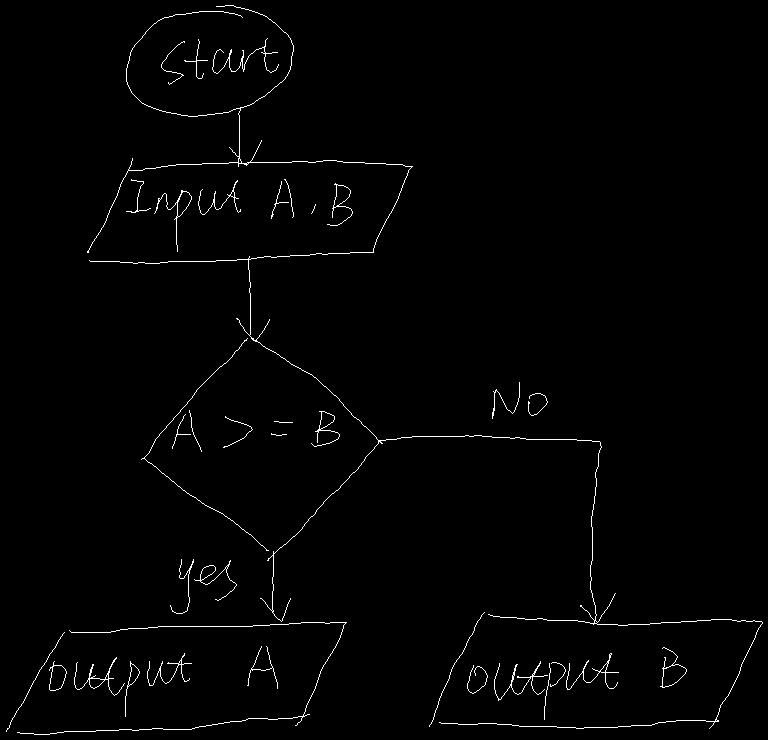 Start
Input A, B
A >= B
No
yes
output A
output B